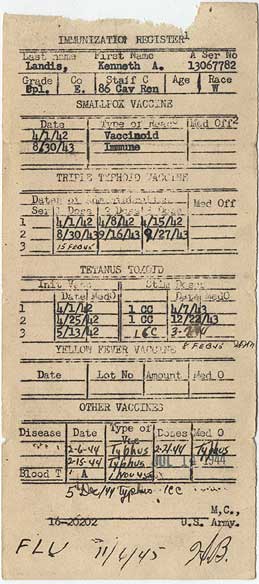 IMMUNIZATION REGISTER1
Last name First Name A Ser No
Landis, Kenneth A. 13067782
Grade Co Staff C Age Race
E. 86 Cav Rcn W
SMALLPOX VACCINE
Date Type of Med Off2
4/1/42 Vaccinoid
8/30/43 Immune
TRIPLE TYPHOID VACCINE
Ser 1 Dose 2 Dose 3 Dose Med Off
1 4/1/42 4/8/42 4/15/42
2 8/30/43 9/16/43 9/27/43
3 15 FEB 45
TETANUS TOXOID
Init Vacc Stim Doses
Date MedO Date MedO
1 4/1/42 1 CC 4/7/43
2 4/25/42 1 CC 12/22/43
3 5/13/42 1 CC
YELLOW FEVER VACCINE 8 FEB 45
Date Lot No Amount Med O
OTHER VACCINES
Disease Date Type of Vac Doses Med O
2-6-44 Typhus 2-21-44
2-15-44 Typhus JUL 14 1944
Blood T A 1 Nov 45
5 Dec/44 Typhus 1CC
M,C.,
16-20202 U.S. Army.
FLU 11/6/45